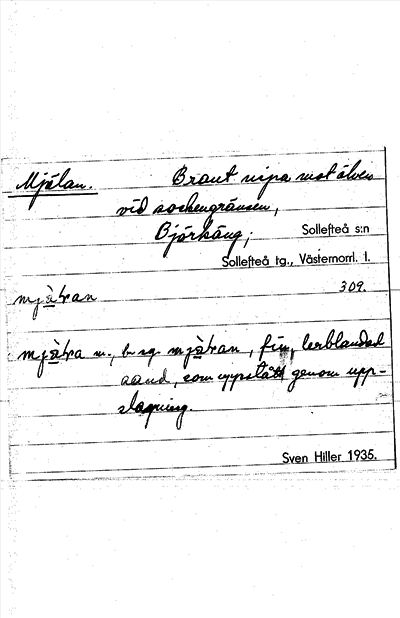 Mjälan. Brant nipa mot älven
vid sockengränsen,
Björkäng; Sollefteå s:n
Sollefteå tg., Västernorrl. l.
309.
m., b. sg. , fin, lerblandad
sand, som uppstått genom upp-
slagning.
Sven Hiller 1935.